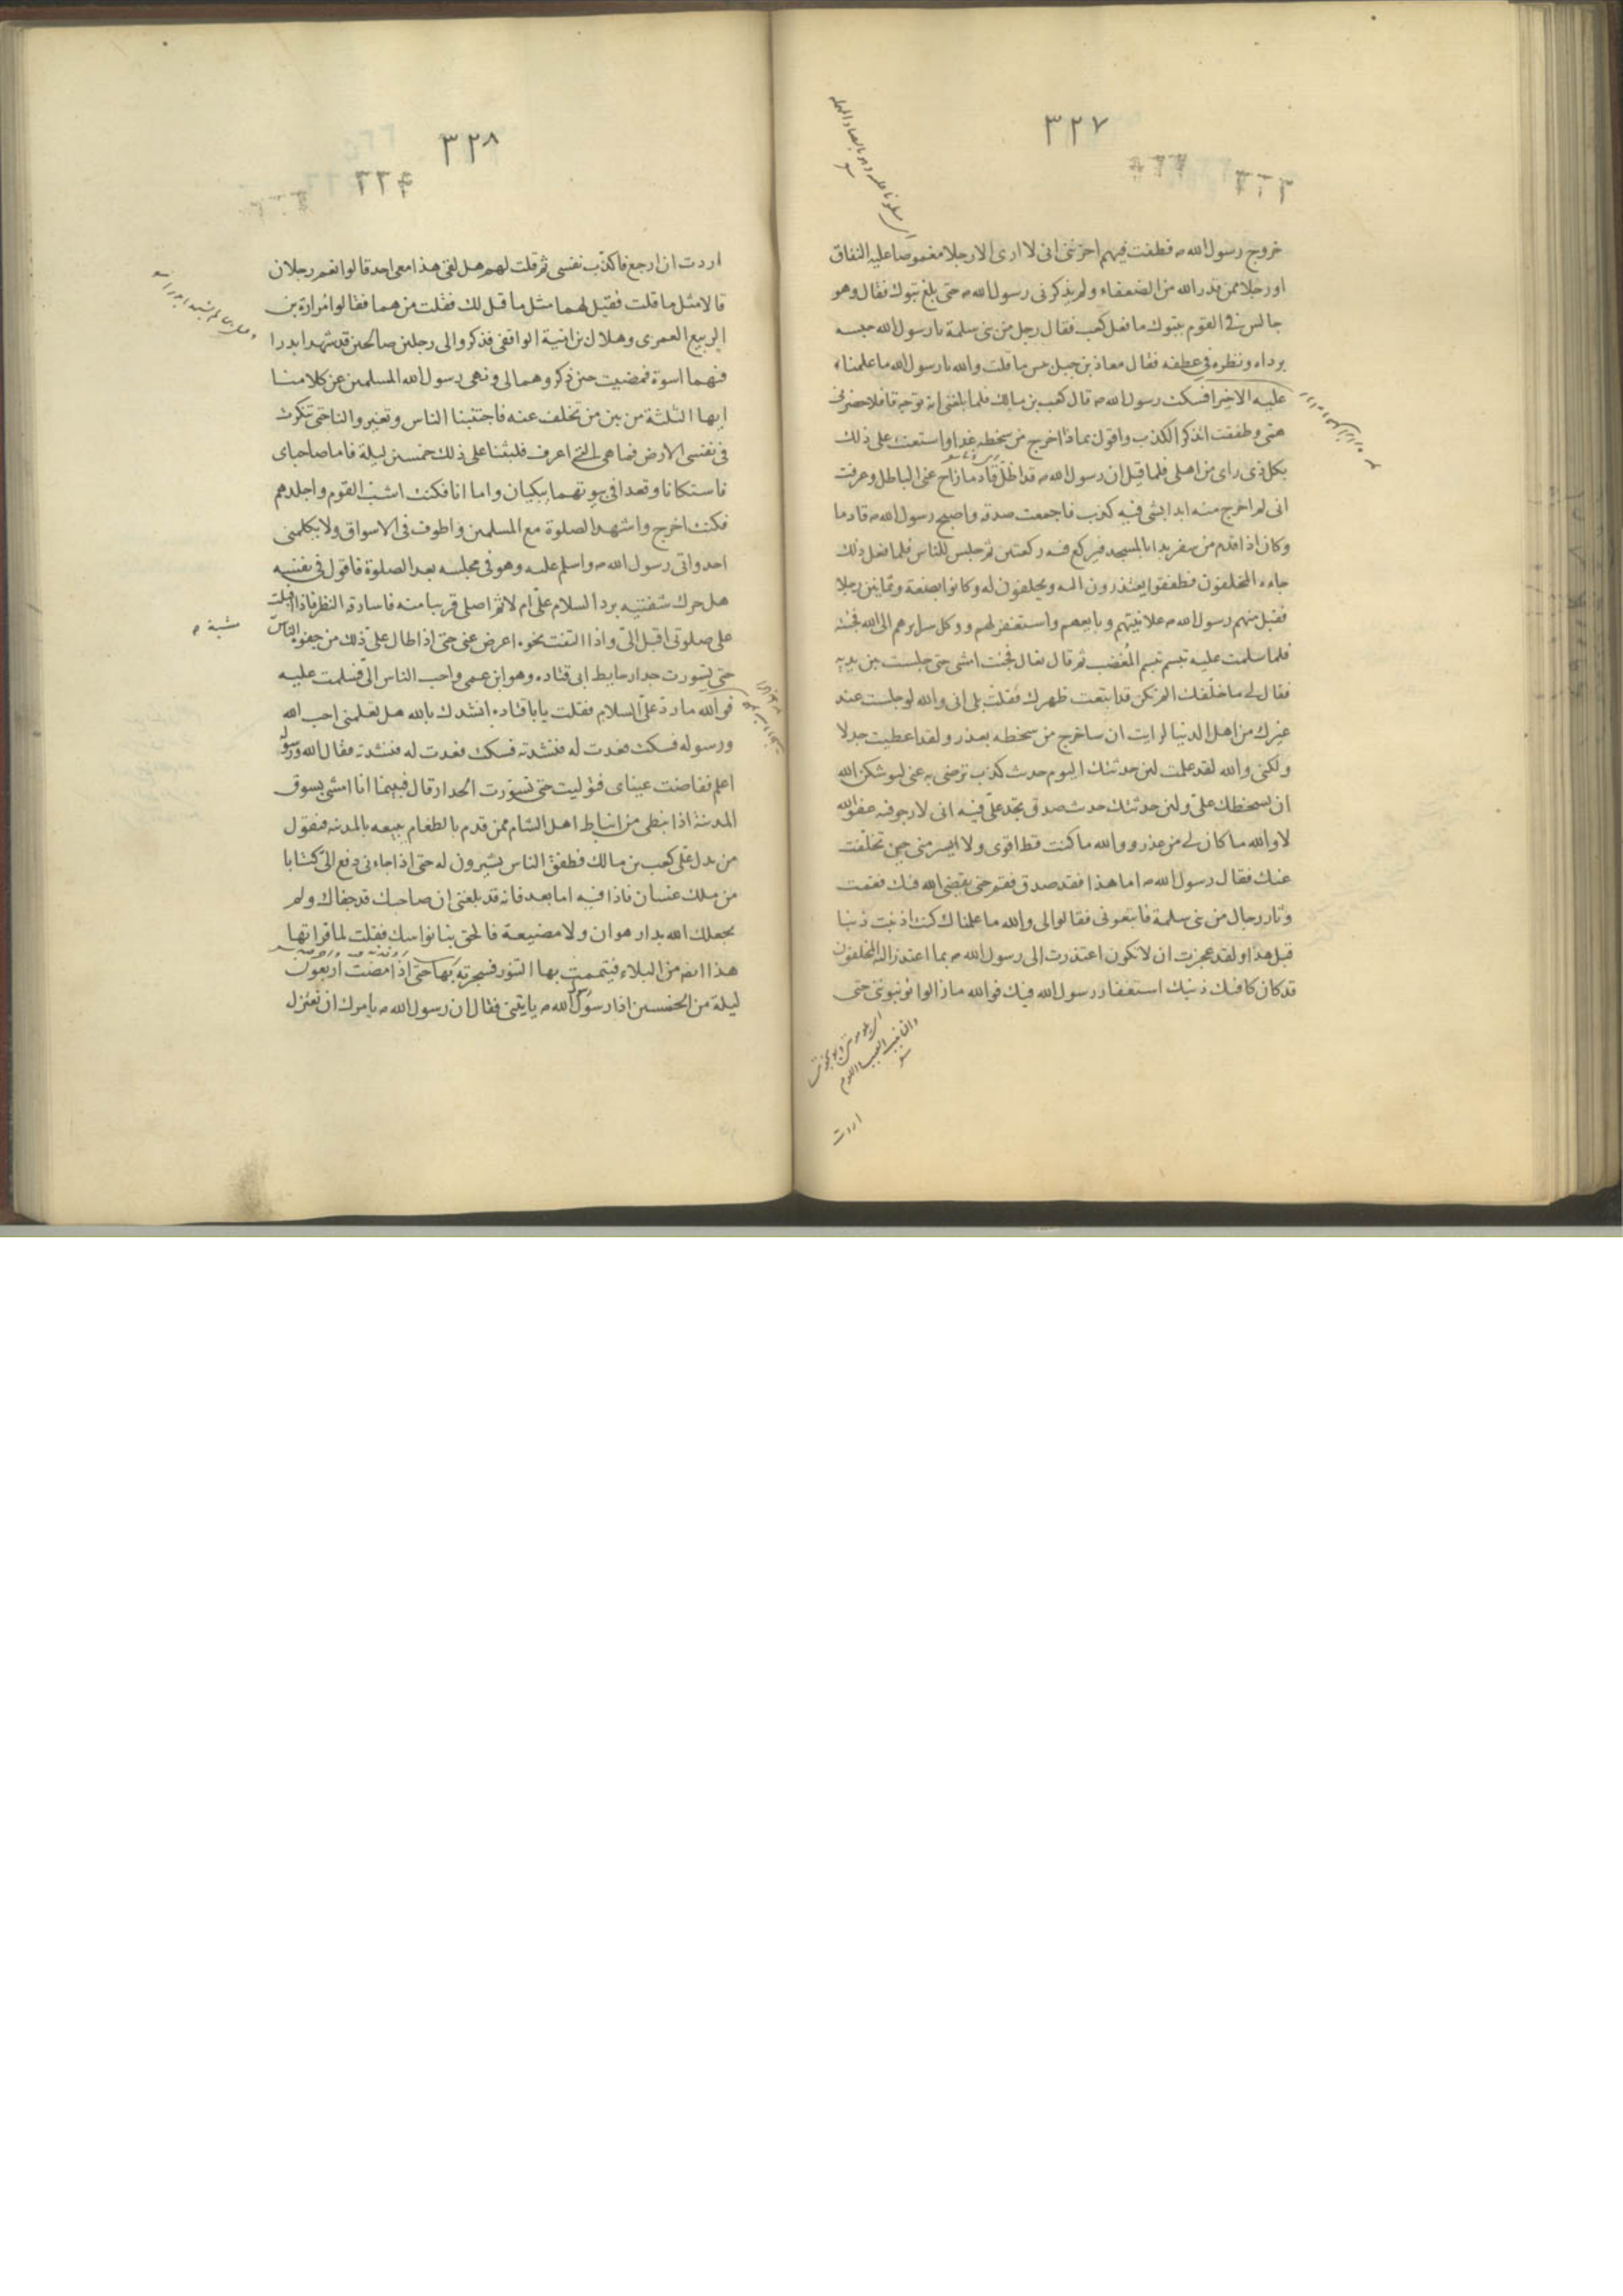 ٣٢٧
خروج رسول الله م فطفت فيهم احزننى انى لا ارى الا رجلا مغموصا عليه النفاق
او رجلا ممن عذر الله من الضعفاء ولم يذكرنى رسول الله م حتى بلغ تبوك فقال وهو
جالس فى القوم بتبوك ما فعل كعب فقال رجل من بنى سلمة يا رسول الله حبسه
برداه ونظره فى عطفه فقال معاذ بن جبل بئس ما قلت والله يا رسول الله ما علمناء
عليه الا خيرا فسكت رسول الله م قال كعب بن مالك فلما بلغنى انه توجه قافلا حضرنى
همى وطفقت اتذكر الكذب واقول بماذا اخرج من سخطه غدا واستعنت على ذلك
بكل ذى راى من اهلى فلما قيل ان رسول الله م قد اظل قادما زاح عنى الباطل وعرفت
انى لم اخرج منه ابدا بشى فيه كذب فاجمعت صدقه واصبح رسول الله م قادما
وكان اذا قدم من سفر بدا بالمسجد فيركع فيه ركعتين ثم جلس للناس فلما فعل ذلك
جاءه المخلفون فطفقوا يعتذرون اليه ويحلفون له وكانوا بضعة وثمانين رجلا
فقبل منهم رسول الله م علانيتهم وبايعهم واستغفر لهم ووكل سرايرهم الى الله فجئته
فلما سلمت عليه تبسم تبسم المُغضب ثم قال تعال فجئت امشى حتى جلست بين يديه
فقال لى ما خلّفك الم تكن قد ابتعت ظهرك فقلت بلى انى والله لو جلست عند
غيرك من اهل الدنيا لرايت ان ساخرج من سخطه بعذر ولقد اعطيت جدلا
ولكنى والله لقد علمت لئن حدثتك اليوم حدث كذب ترضى به عنى ليوشكن الله
ان يسخطك علىّ ولئن حدثتك حدث صدق تجد علىّ فيه انى لارجو فيه عفو الله
لا والله ما كان لى من عذر ووالله ما كنت قط اقوى ولا ايسر منى حين تخلّفت
عنك فقال رسول الله م اما هذا فقد صدق فقم حتى يقضى الله فيك فقمت
وثار رجال من بنى سلمة فاتبعونى فقالوا لى والله ما علمناك كنت اذنبت ذنبا
قبل هذا ولقد عجزت ان لا تكون اعتذرت الى رسول الله م بما اعتذر اليه المخلفون
قد كان كافيك ذنبك استغفار رسول الله فيك فوالله ما زالوا يؤنبوننى حتى
اردت
٣٢٨
اردت ان ارجع فاكذب نفسى ثم قلت لهم هل لقى هذا معى احد قالوا نعم رجلان
قالا مثل ما قلت فقيل لهما مثل ما قيل لك فقلت من هما فقالوا مُرارة بن
الربيع العمرى وهلال بن امية الواقفى فذكروا لى رجلين صالحين قد شهدا بدرا
فيهما اسوة فمضيت حين ذكروهما لى ونهى رسول الله المسلمين عن كلامنا
ايها الثلثة من بين من تخلف عنه فاجتنبنا الناس وتغيروا لنا حتى تنكرت
فى نفسى الارض فما هى التى اعرف فلبثنا على ذلك خمسين ليلة فاما صاحباى
فاستكانا وقعدا فى بيوتهما يبكيان واما انا فكنت اشب القوم واجلدهم
فكنت اخرج واشهد الصلوة مع المسلمين واطوف فى الاسواق ولا يكلمنى
احد واتى رسول الله م واسلم عليه وهو فى مجلسه بعد الصلوة فاقول فى نفسه
هل حرك شفتيه برد السلام علىّ ام لا ثم اصلى قريبا منه فاسارقه النظر فاذا اقبلت
على صلوتى اقبل الىّ واذا التفت نحوه اعرض عنى حتى اذا طال علىّ ذلك من جفوه الناس
حتى تسورت جدار حايط ابى قتاده وهو ابن عمى واحب الناس الىّ فسلمت عليه
فوالله ما ردّ علىّ السلام فقلت يا با قتاده انشدك بالله هل تعلمنى احب الله
ورسوله فسكت فعدت له فنشدته فسكت فعدت له فنشدته فقال الله ورسوله
اعلم ففاضت عيناى فتوليت حتى تسورت الجدار قال فبينما انا امشى بسوق
المدينة اذا نبطى من انباط اهل الشام ممن قدم بالطعام يبيعه بالمدينه فيقول
من يدل على كعب بن مالك فطفق الناس يشيرون له حتى اذا جاءنى دفع الىّ كتابا
من ملك غسان فاذا فيه اما بعد فانه قد بلغنى ان صاحبك قد جفاك ولم
يجعلك الله بدار هوان ولا مضيعة فالحق بنا نواسك فقلت لما قراتها
هذا ايضا من البلاء فتيممت بها التنور فسجرته بها حتى اذا مضت اربعون
ليلة من الخمسين اذا رسول رسول الله م ياتينى فقال ان رسول الله م يامرك ان تعتزل